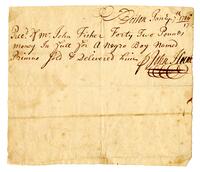 Boston Janry
Recd of Mr John Fisher Forty Two Pounds
money In full for A Negro Boy Named
Primus Sold & Delivered him